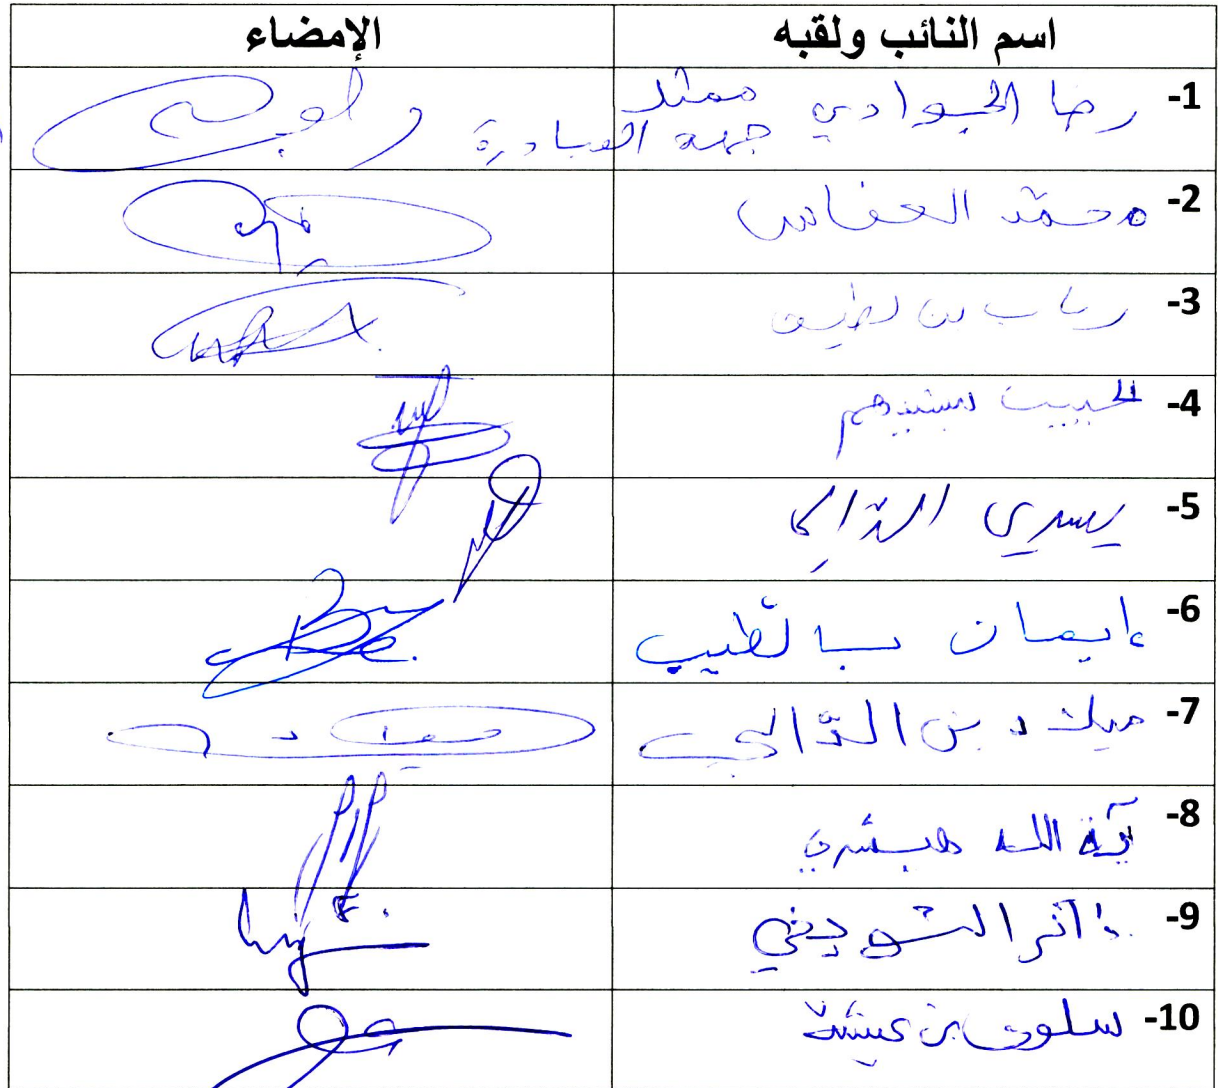 اسم النائب ولقبه	الإمضاء
1- رضا الجوادي ممثل
جهة المبادرة
2- محمد العفاس
3- رباب بن لطيف
4- الحبيب بنسيدهم
5- يسري الدالي
6- إيمان بالطيب
7- ميلاد بن الدالي
8- آية الله هيشري
9-
10- سلوى بن عيشة